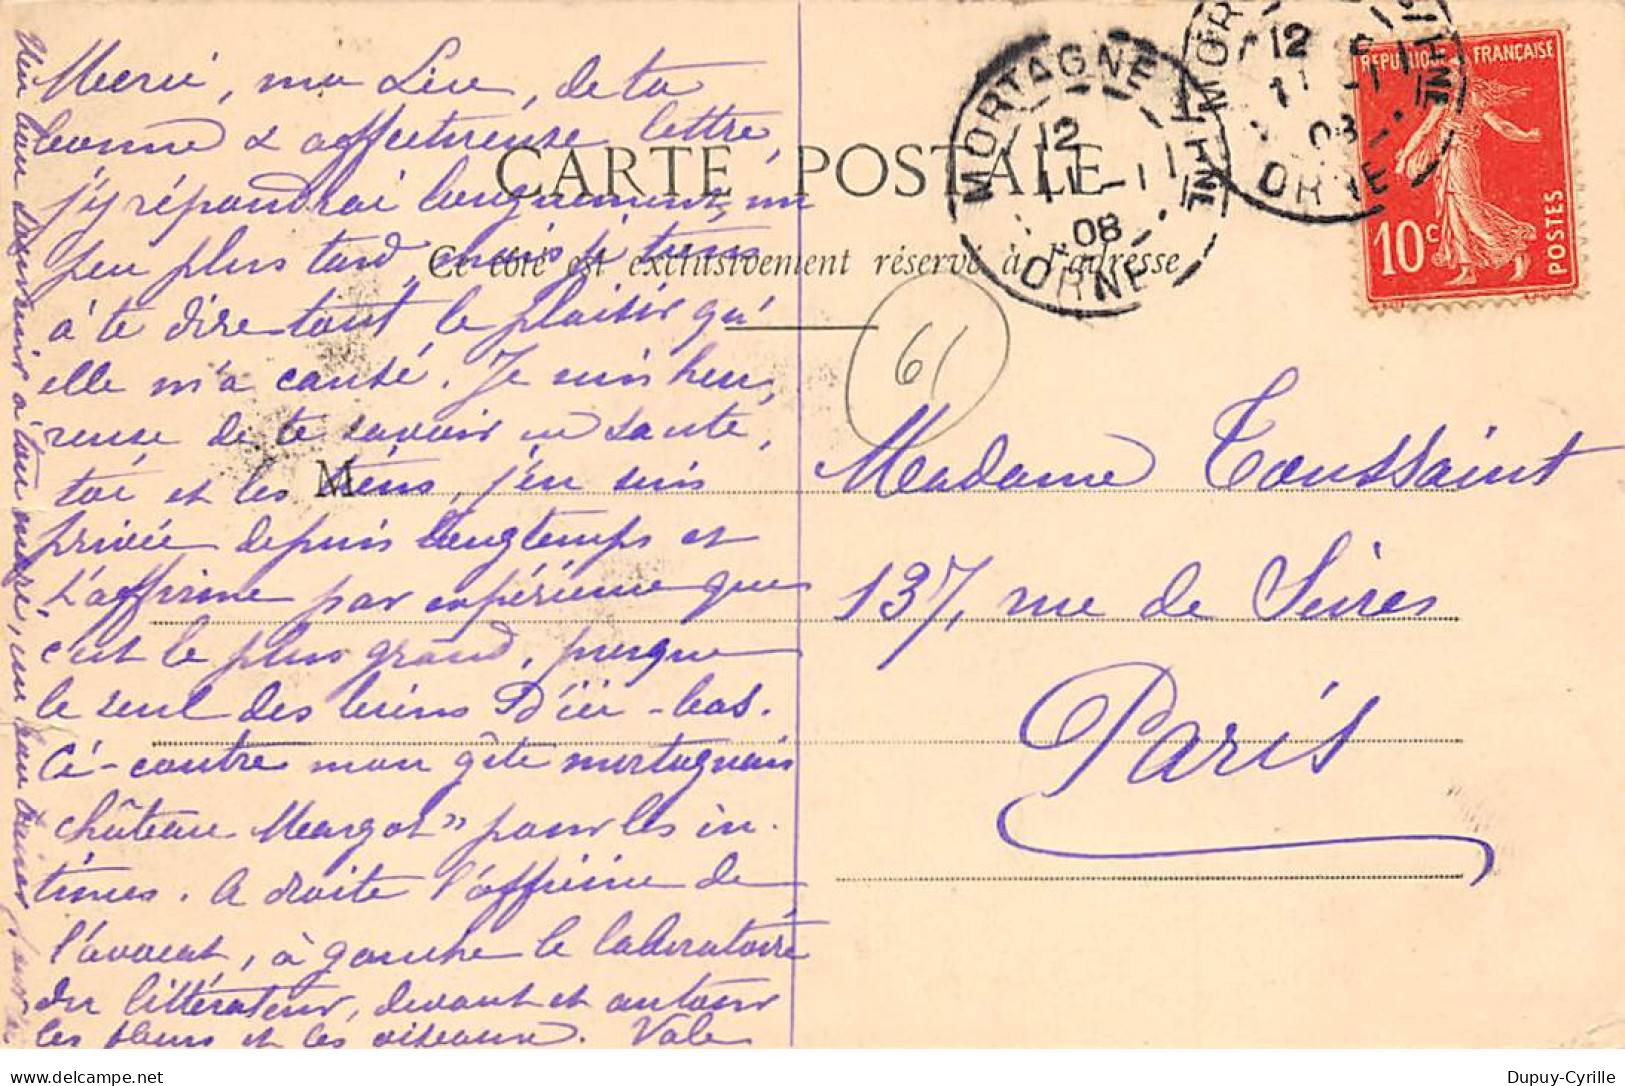 Merci, ma Lise, de ta
bonne & affectueuse lettre,
j'y répondrai longuement, un
peu plus tard, mais je tiens
à te dire tout le plaisir qu'
elle m'a causé. Je suis heu,
reuse de te savoir en santé,
toi et les tiens, j'en suis
privée depuis longtemps et
t'affirme par expérience que
c'est le plus grand, presque
le seul des biens d'ici-bas.
Ci-contre mon gîte mortagnais
château Margot" pour les in.
times. A droite l'officine de
l'avocat, à gauche le laboratoire
du littérateur, devant et autour
les fleurs et les oiseaux. Vale
Un bon souvenir à ton mari, un bon baiser
CARTE POSTALE
Ce côté est exclusivement réservé à l'adresse
M
61
MORTAGNE
12
11-11
08
ORNE
12
11-11
08
ORNE
REPUBLIQUE FRANÇAISE
10c
POSTES
Madame Toussaint
137, rue de Sèvres
Paris
delcampe.net
Dupuy-Cyrille